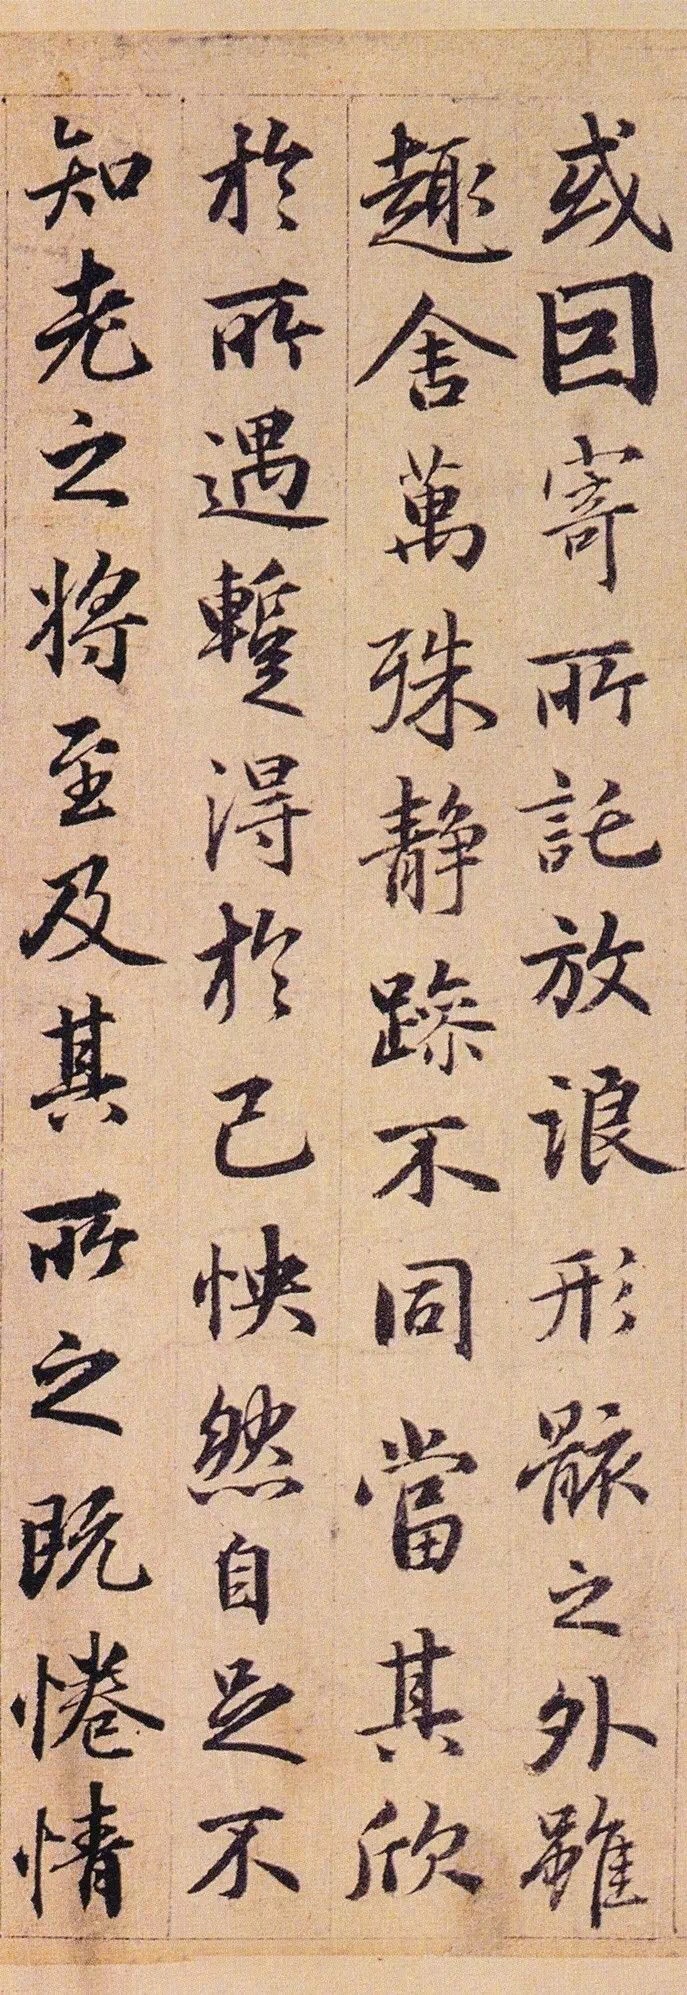 或因寄所託放浪形骸之外雖
趣舍萬殊静躁不同當其欣
於所遇蹔得於己怏然自足不
知老之将至及其所之既惓情